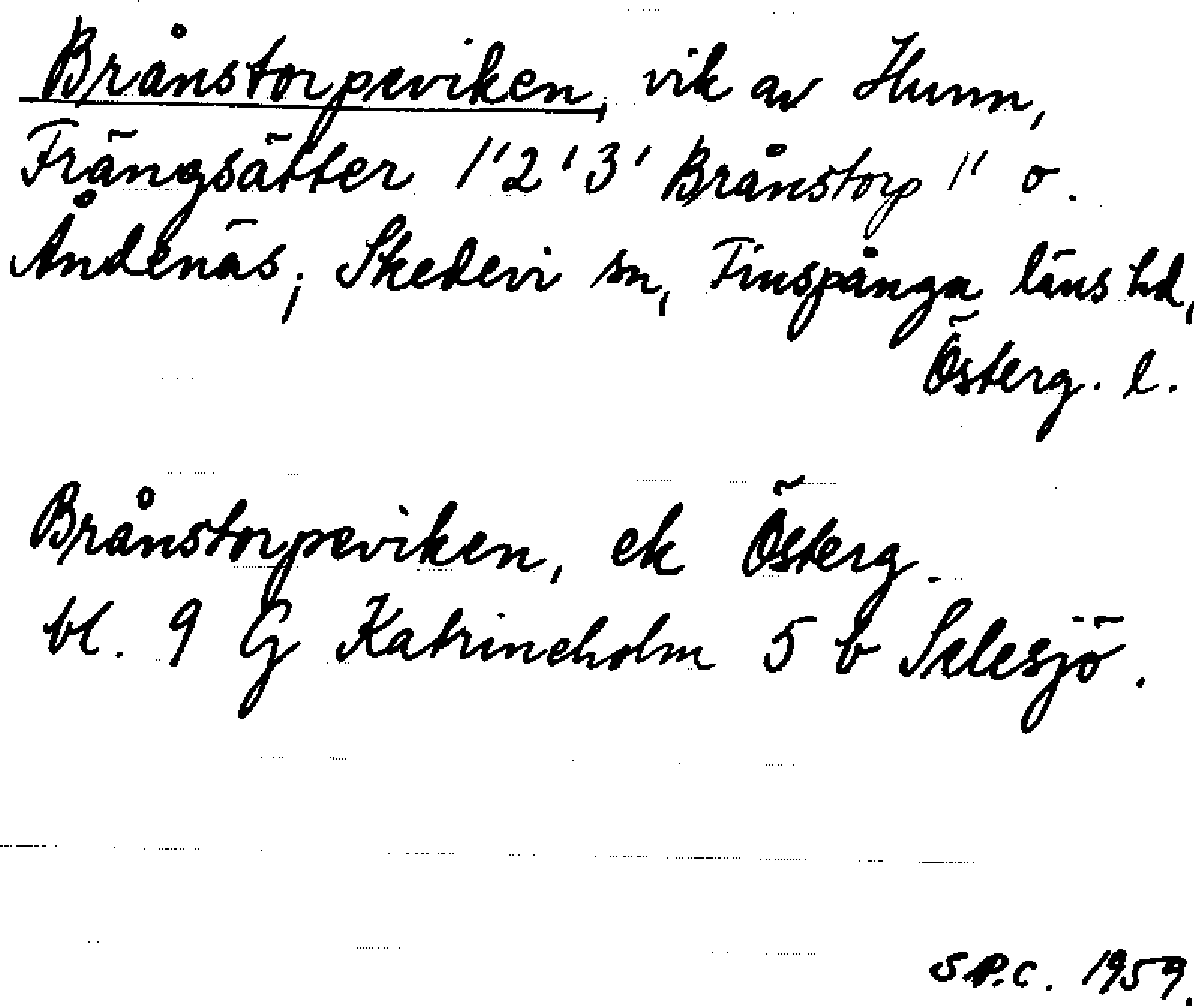 Brånstorpeviken, vik av Hunn,
Frängsätter 1'2'3' Brånstorp 1' o.
Åndenäs; Skedevi sn, Finspånga läns hd,
Österg. l.
Brånstorpeviken, ek Österg.
bl. 9 G Katrineholm 5 b Selesjö.
S.P.C. 1959.